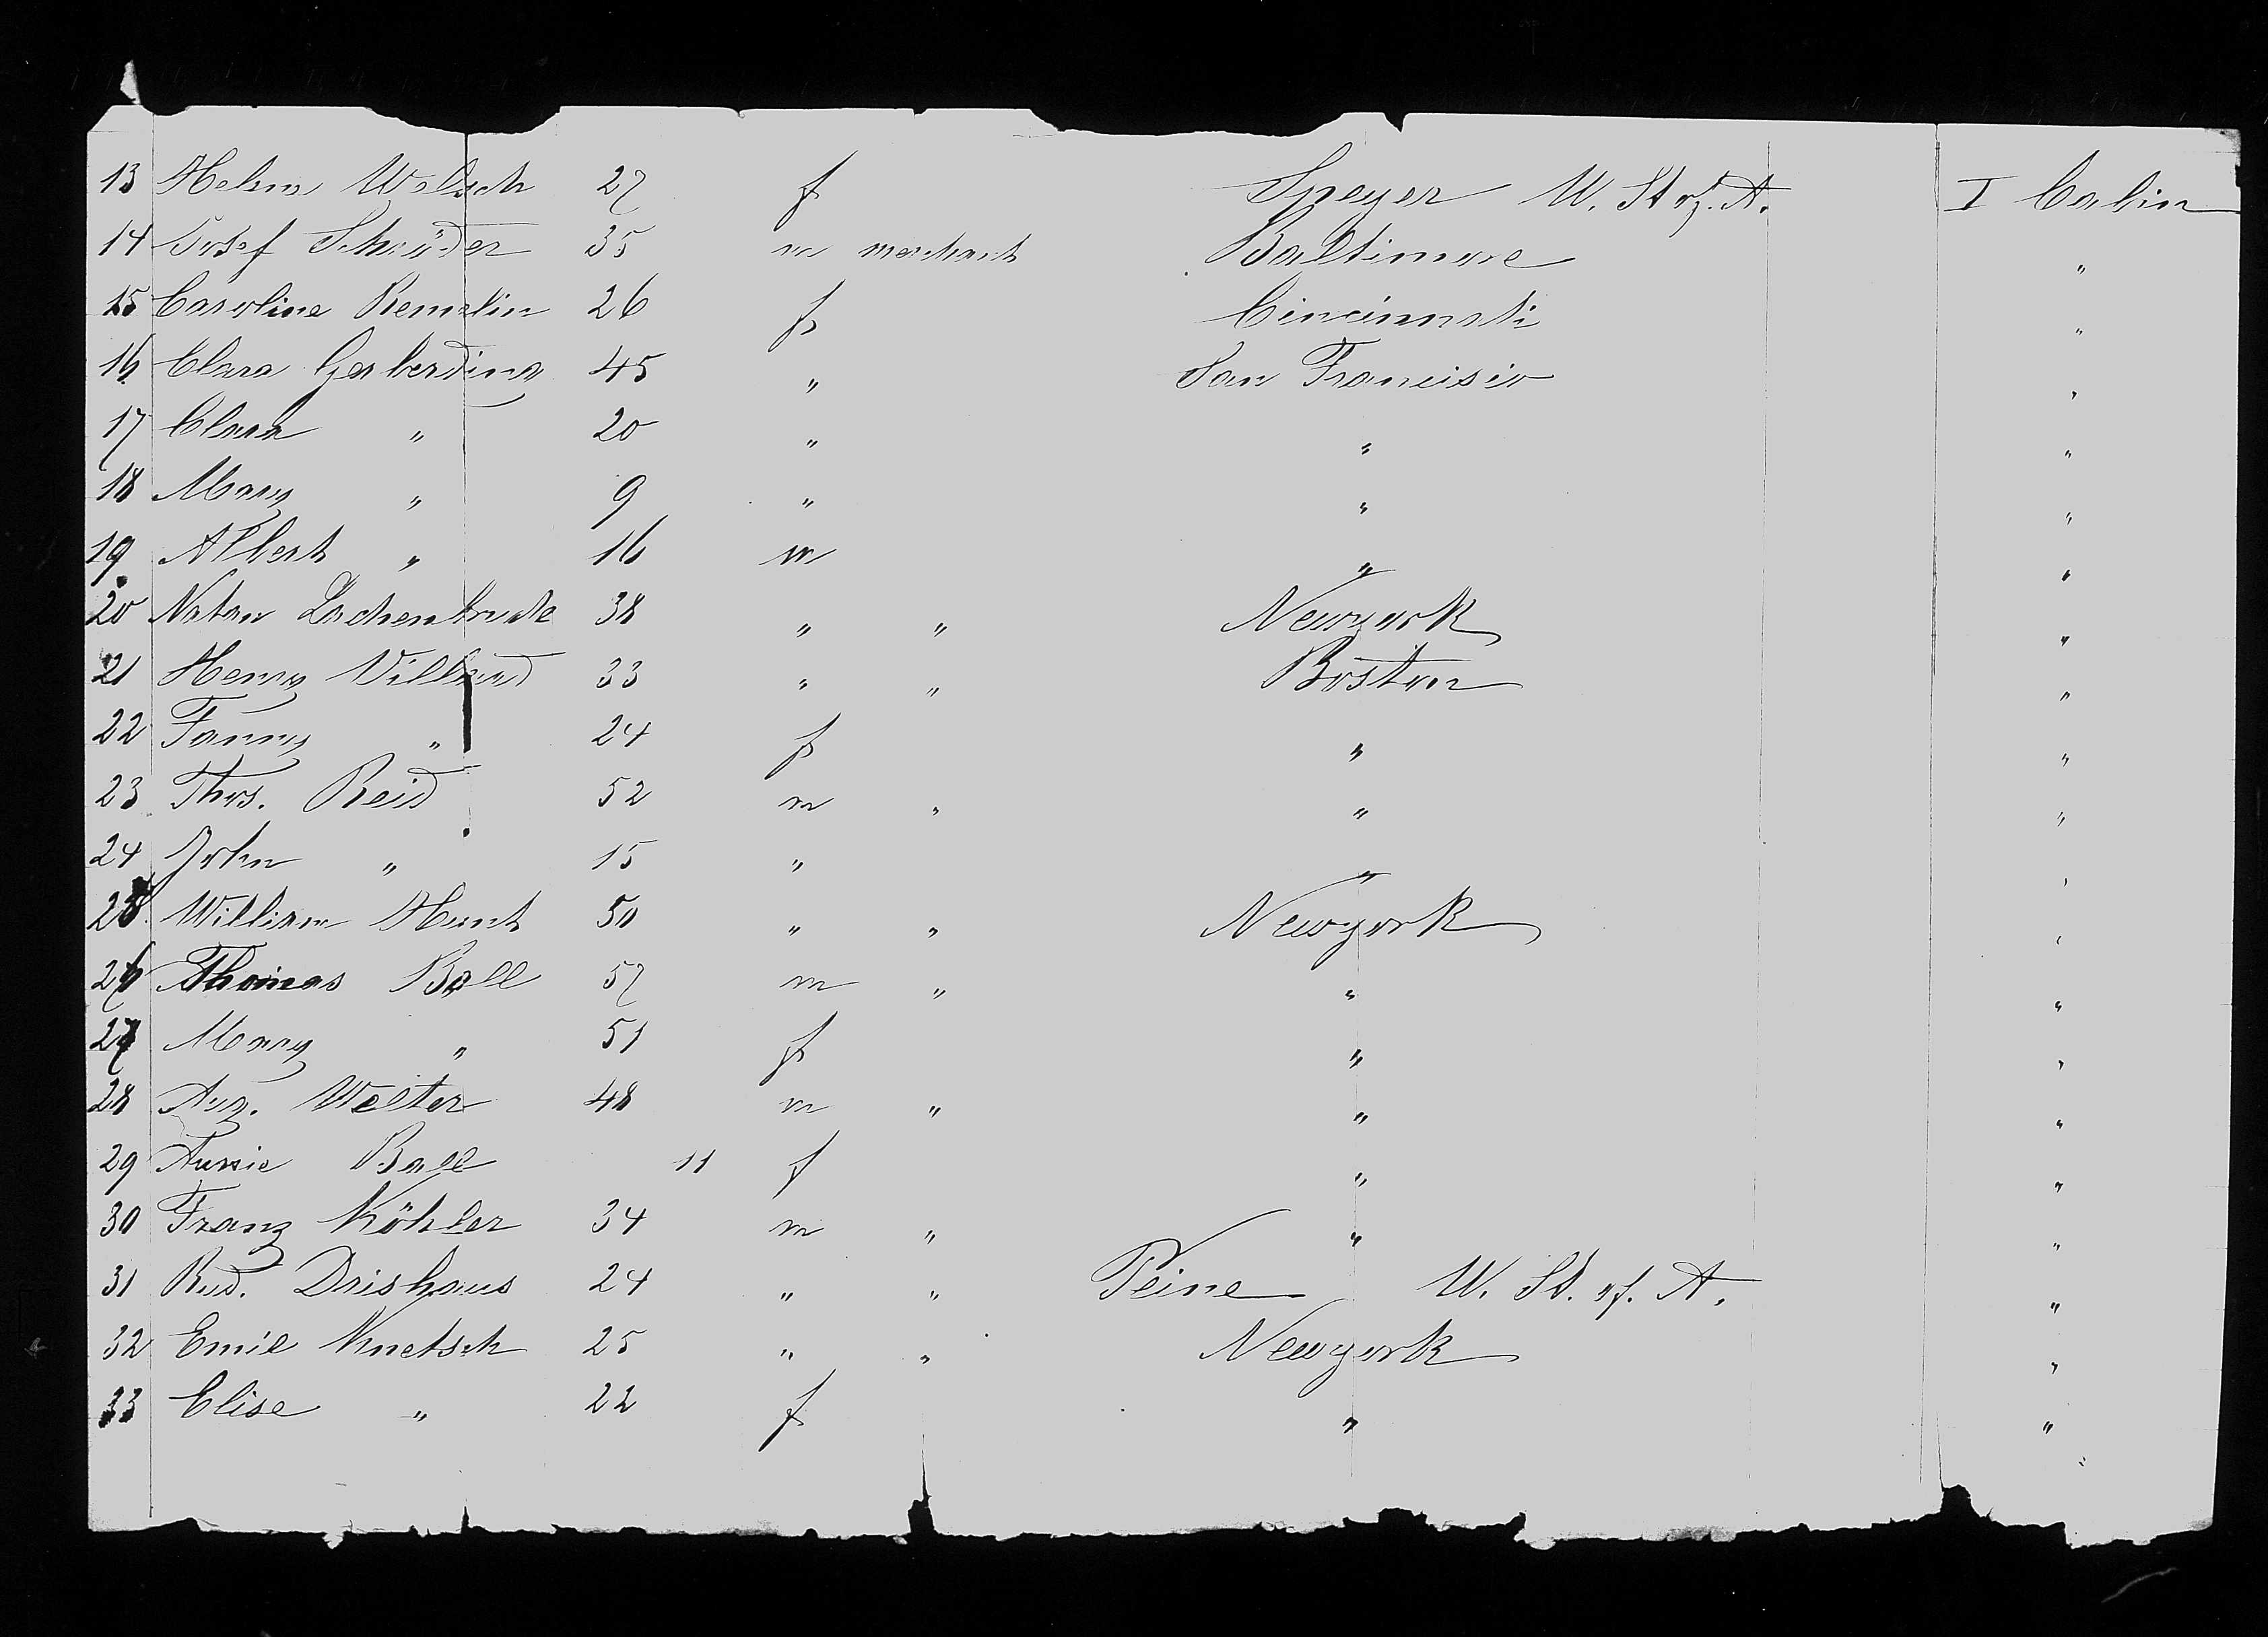 13 Helene Welsch 27 f Speyer U. St of. A. I Cabin
14 Josef Schröder 35 m merchant Baltimore "
15 Caroline Remelin 26 f Cincinnati "
16 Clara Gerberding 45 " San Francisco "
17 Clara " 20 " " "
18 Mary " 9 " " "
19 Albert " 16 m " "
20 Natan 38 " " Newyork "
21 Henry Villard 33 " " Boston "
22 Fanny " 24 f " "
23 Thos. Reid 52 m " " "
24 John " 15 " " "
25 William Hunt 50 " " Newyork "
26 Thomas Ball 57 m " " "
27 Mary " 51 f " "
28 Aug. Welter 48 m " " "
29 Ball 11 f " "
30 Franz Köhler 34 m " " "
31 Rud. Drishaus 24 " " Peine U. St. of. A. "
32 Emil 25 " " Newyork "
33 Elise " 22 f " "
"